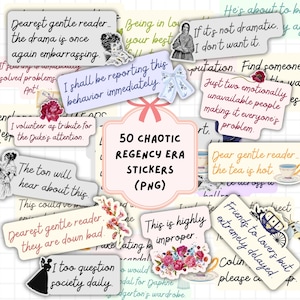 Dearest gentle reader,
the drama is once
again embarrassing.
Being in lo
your best
He's about to b
If it's not dramatic,
I don't want it.
I shall be reporting this
behavior immediately.
solved problems
Art!
Find someone
Just two emotionally
unavailable people
making it everyone's
problem.
I volunteer as tribute for
the Duke's attention.
50 CHAOTIC
REGENCY ERA
STICKERS
(PNG)
Dear gentle reader,
the tea is hot.
The ton will
hear about this.
This could
Dearest gentle reader,
they are down bad.
This is highly
improper.
Friends to lovers but
extremely delayed
I too question
society daily.
for Daphne
wardrobe.
Colin
please